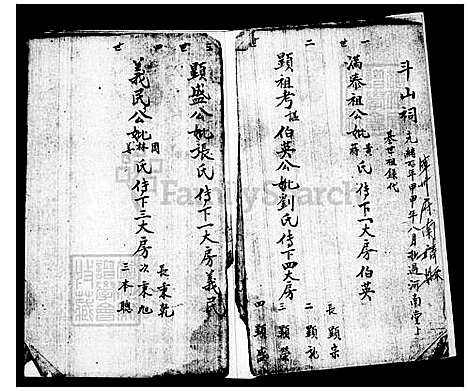 斗山祠
光緒 年甲申年八月 過河南堂上
漳州府南靖縣
基世祖錄代
一世
滿泰祖公妣黃蔣氏傳下一大房伯英
二
顯祖考諡伯英公妣劉氏傳下四大房
長顯宗
二顯乳
三顯榮
四顯盛
三世
顯盛公妣張氏傳下一大房義民
四世
義民公妣周林姜氏傳下三大房
長東乾
次東旭
三本聰
FamilySearch